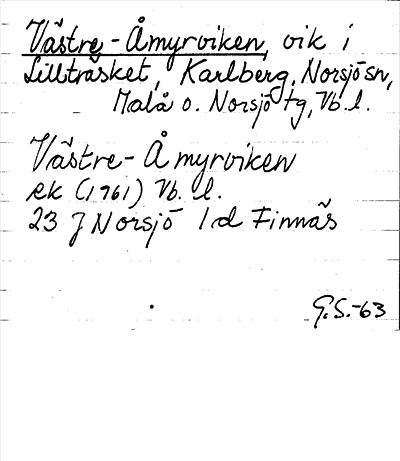 Västre-Åmyrviken, vik i
Lillträsket, Karlberg, Norsjö sn,
Malå o. Norsjö tg, Vb. l.
Västre-Åmyrviken
ek (1961) Vb. l.
23 J Norsjö 1 d Finnäs
G.S.-63